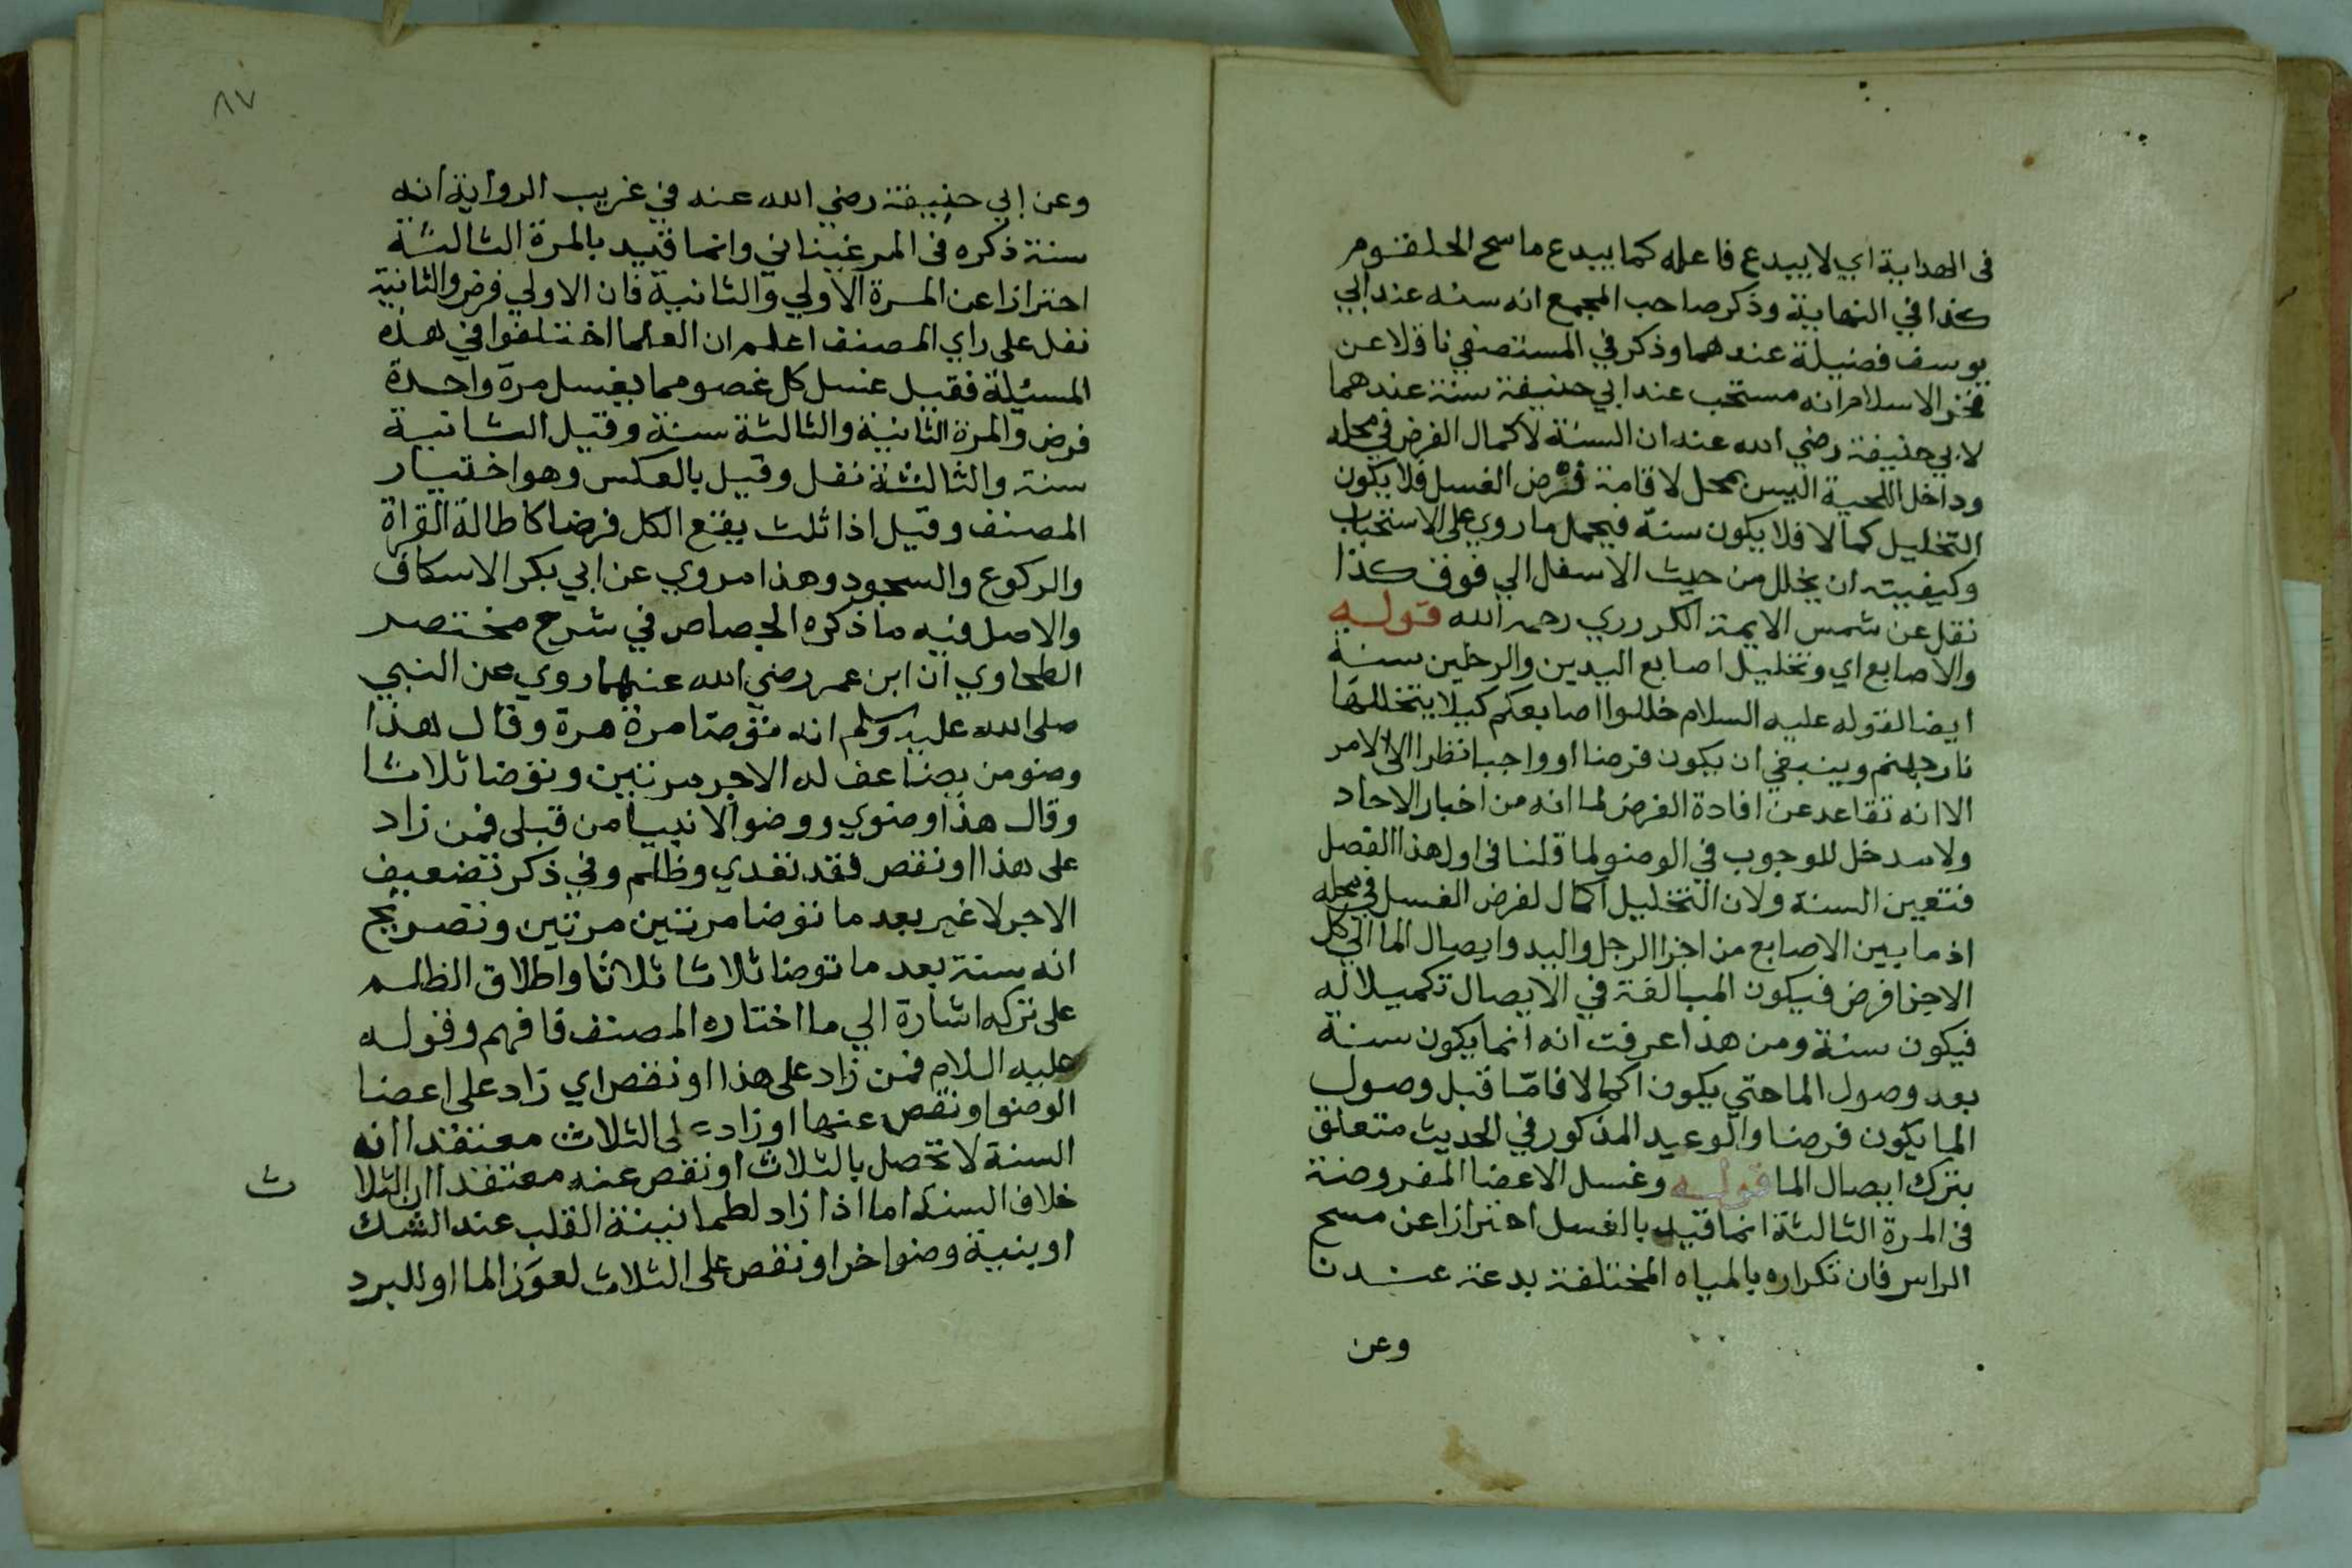 في الهداية اي لا يبدع فاعله كما يبدع ماسح الحلقوم
كذا في النهاية وذكر صاحب المجمع انه سنه عند ابي
يوسف فضيلة عندهما وذكر في المستصفي ناقلا عن
فخر الاسلام انه مستحب عند ابي حنيفة سنة عندهما
لابي حنيفة رضي الله عنه ان السنة لاكمال الفرض في محله
وداخل اللحية ليس بمحل لاقامة فرض الغسل فلا يكون
التخليل كمالا فلا يكون سنة فيحمل ما روي على الاستحباب
وكيفيته ان يخلل من حيث الاسفل الي فوق كذا
نقل عن شمس الايمة الكردري رحمه الله قوله
والاصابع اي وتخليل اصابع اليدين والرجلين سنة
ايضا لقوله عليه السلام خللوا اصابعكم كيلا يتخللها
نار جهنم وينبغي ان يكون فرضا او واجبا نظرا الى الامر
الا انه تقاعد عن افادة الفرض لما انه من اخبار الاحاد
ولا مدخل للوجوب في الوضو لما قلنا في اول هذا الفصل
فتعين السنة ولان التخليل اكمال لفرض الغسل في محله
اذ ما بين الاصابع من اجزا الرجل واليد وايصال الما الي كل
الاجزا فرض فيكون المبالغة في الايصال تكميلا له
فيكون سنة ومن هذا عرفت انه انما يكون سنة
بعد وصول الما حتي يكون اكمالا فامّا قبل وصول
الما يكون فرضا والوعيد المذكور في الحديث متعلق
بترك ايصال الما قوله وغسل الاعضا المفروضة
في المرة الثالثة انما قيد بالغسل احترازا عن مسح
الراس فان تكراره بالمياه المختلفة بدعة عندنا
وعن
٨٧
وعن ابي حنيفة رضي الله عنه في غريب الرواية انه
سنة ذكره في المرغيناني وانما قيد بالمرة الثالثة
احترازا عن المرة الاولي والثانية فان الاولي فرض والثانية
نفل على راي المصنف اعلم ان العلما اختلفوا في هذه
المسئلة فقيل غسل كل عضو مما يغسل مرة واحدة
فرض والمرة الثانية والثالثة سنة وقيل الثانية
سنة والثالثة نفل وقيل بالعكس وهو اختيار
المصنف وقيل اذا ثلث يقع الكل فرضا كاطالة القراة
والركوع والسجود وهذا مروي عن ابي بكر الاسكاف
والاصل فيه ما ذكره الجصاص في شرح مختصر
الطحاوي ان ابن عمر رضي الله عنهما روي عن النبي
صلى الله عليه وسلم انه توضا مرة مرة وقال هذا
وضو من يضاعف له الاجر مرتين وتوضا ثلاثا
وقال هذا وضوي ووضو الانبيا من قبلى فمن زاد
على هذا او نقص فقد تعدي وظلم وفي ذكر تضعيف
الاجر لا غير بعد ما توضا مرتين مرتين وتصريح
انه سنة بعد ما توضا ثلاثا ثلاثا واطلاق الظلم
على تركه اشارة الي ما اختاره المصنف فافهم وقوله
عليه السلام فمن زاد على هذا او نقص اي زاد على اعضا
الوضوا ونقص عنها او زاد على الثلاث معتقدا انه
السنة لا تحصل بالثلاث او نقص عنه معتقدا ان الثلا ث
خلاف السنة اما اذا زاد لطمانينة القلب عند الشك
او بنية وضوا خر او نقص على الثلاث لعوَز الما او للبرد